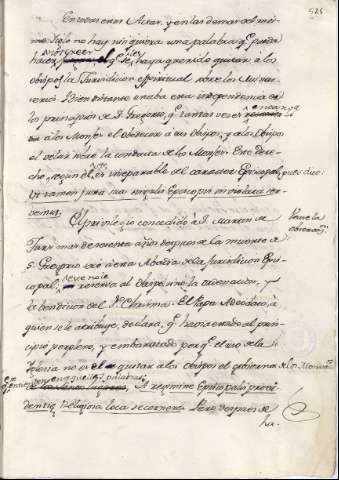 525
En todas estas Actas, y en las demas del mis-
mo siglo no hay ni siquiera una palabra q.e pueda
hacer sospechar q.e se les haya querido quitar à los
obispos la Jurisdicion espiritual sobre los Monas-
terios. Bien distante estaba esta independencia de
los principios de S. Gregorio, q.e tantas veces encarga
à los Monjes el obedecer à sus obispos, y à los obispos
el velar sobre la conducta de los Monjes. Este dere-
cho, segun él, es inseparable del caracter Episcopal,
El privilegio concedido à S. Martin de
Turs mas de sesenta años despues de la muerte de
S. Gregorio exime esta Abadia de la Jurisdicion Epis-
copal, y no le reserva al Obispo sino la ordenacion, y
la bendicion del S.to Chrisma. El Papa Adeodato, à
quien se le atribuye, declara, q.e ha estado al prin-
cipio perplexo, y embarazado porq.e el uso de la
Iglesia no es el quitar à los obispos el gobierno de los Monast.os
en aquellas palabras:
A regimine Episcopalis provi-
dentiae religiosa loca secernere. Pero despues se
ha